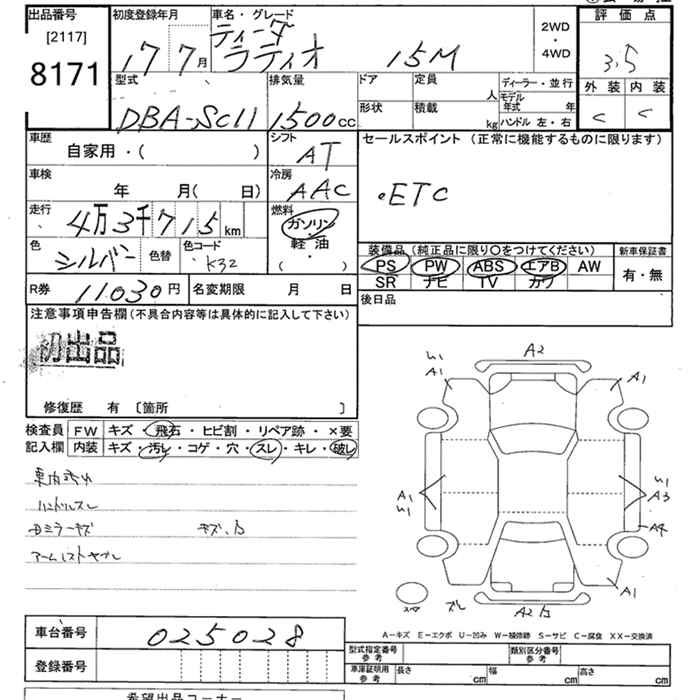 出品番号
[2117]
8171
初度登録年月
17 7月
車名・グレード
ティーダ
ラティオ 15M
2WD
・
4WD
評価点
3.5
外装 内装
C C
型式
DBA-SC11
排気量
1500cc
ドア
形状
定員 人
積載 kg
ディーラー・並行
モデル
年式 年
ハンドル 左・右
車歴
自家用・( )
シフト
AT
セールスポイント (正常に機能するものに限ります)
・ETC
車検
年 月( 日)
冷房
AAC
走行
4万3千715km
燃料
ガソリン
軽油
・
( )
色
シルバー
色替
色コード
K32
装備品 (純正品に限り○をつけてください)
PS PW ABS エアB AW
SR ナビ TV カワ
新車保証書
有・無
R券 11030円
名変期限 月 日
後日品
注意事項申告欄(不具合内容等は具体的に記入して下さい)
初出品
修復歴 有 〔箇所 〕
検査員
記入欄
FW キズ・飛石・ヒビ割・リペア跡・×要
内装 キズ・汚レ・コゲ・穴・スレ・キレ・破レ
車内汚れ
ハンドルスレ
Dミラーキズ
キズ、B
A2
U1
A1
A1
A1
U1
U1
A3
A4
A1
A2 B
スペア
ズレ
A-キズ E-エクボ U-凹み W-補修跡 S-サビ C-腐食 XX-交換済
車台番号
025028
登録番号
型式指定番号
参考
類別区分番号
参考
車庫証明用
参考
長さ cm
幅 cm
高さ cm
希望出品コーナー